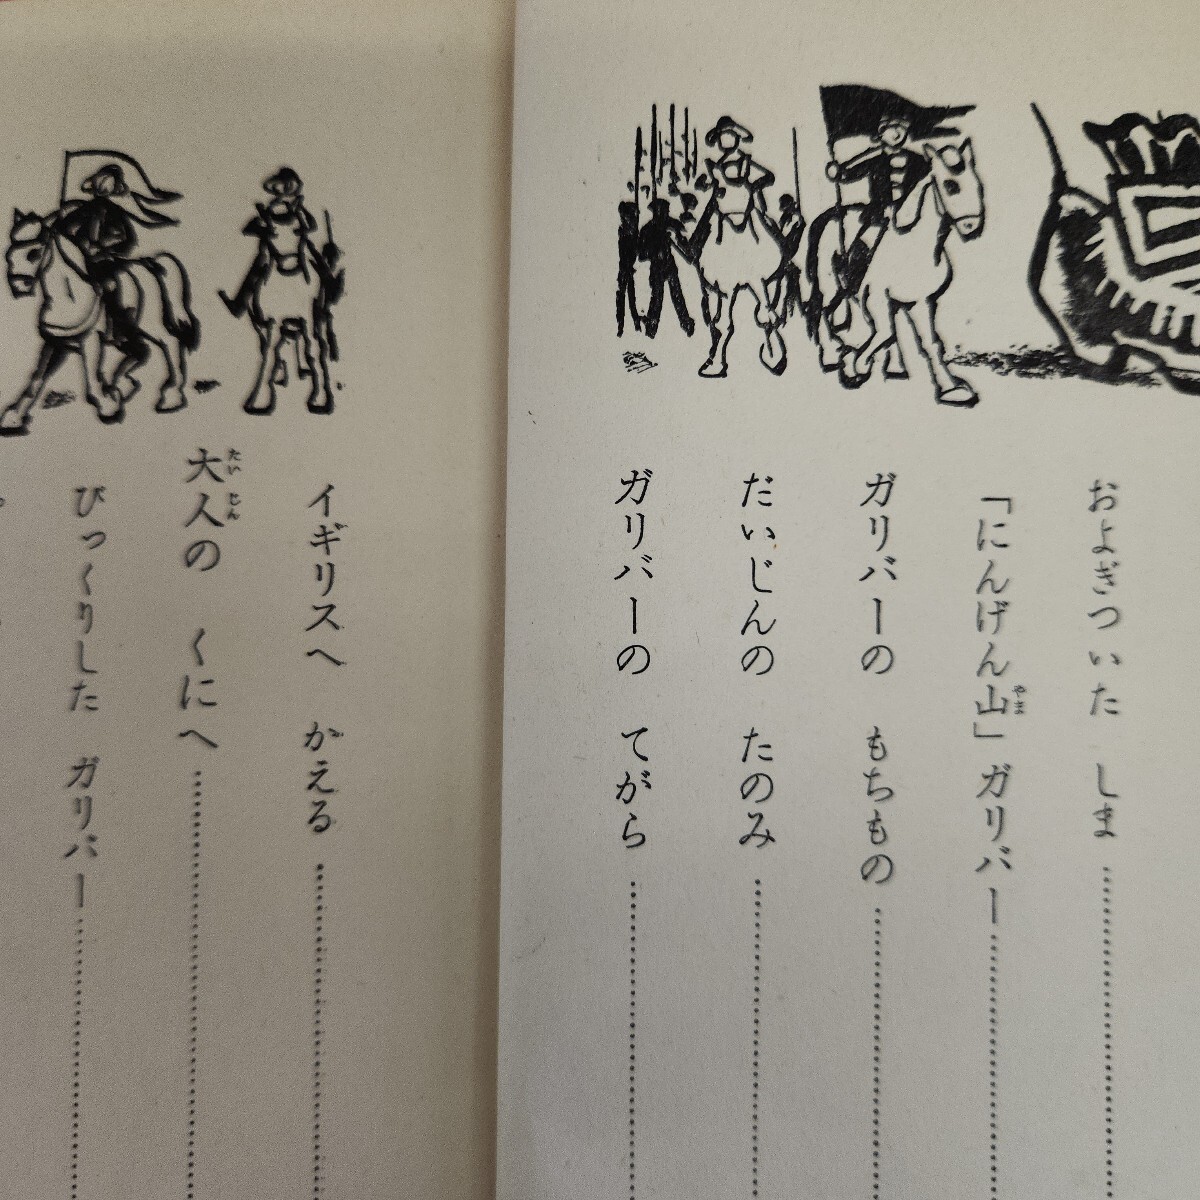 およぎついた しま
「にんげん山」ガリバー
やま
ガリバーの もちもの
だいじんの たのみ
ガリバーの てがら
イギリスへ かえる
大人の くにへ
たいじん
びっくりした ガリバー